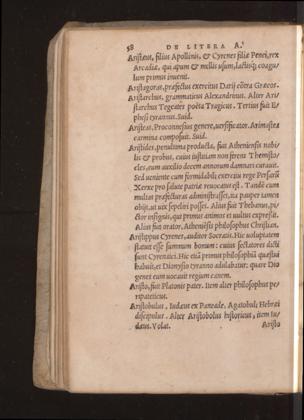 58 DE LITERA A.
Aristæus, filius Apollinis, & Cyrenes filiæ Penei, rex
Arcadiæ, qui apum & mellis usum, lactisq; coagu-
lum primus invenit.
Aristagoras, præfectus exercitus Darij cōtra Græcos.
Aristarchus, grammaticus Alexandrinus. Alter Ari-
starchus Tegeates poëta Tragicus. Tertius fuit E-
phesi tyrannus. Suid.
Aristeas, Proconnesius genere, versificator. Arimaspea
carmina composuit. Suid.
Aristides, penultima producta, fuit Atheniensis nobi-
lis & probus, cuius iustitiam non ferens Themisto-
cles, eum auxilio decem annorum damnari curavit.
Sed veniente cum formidabili exercitu rege Persarū
Xerxe pro salute patriæ revocatus est. Tandē cum
multas præfecturas administrasset, ita pauper tamen
obijt, ut vix sepeliri posset. Alius fuit Thebanus, pi-
ctor insignis, qui primus animos et vultus expressit.
Alius fuit orator, Atheniēsis philosophus Christian.
Aristippus Cyrenes, auditor Socratis. Hic voluptatem
statuit esse summum bonum: cuius sectatores dicti
sunt Cyrenaici. Hic etiā primus philosophiā quæstui
habuit, et Dionysio tyranno adulabatur: quare Dio
genes eum vocavit regium canem.
Aristo, fuit Platonis pater. Item alter philosophus pe-
ripateticus.
Aristobulus, Iudæus ex Paneade. Agatobuli Hebræi
discipulus. Alter Aristobolus historicus, item Iu-
dæus. Volat.
Aristo